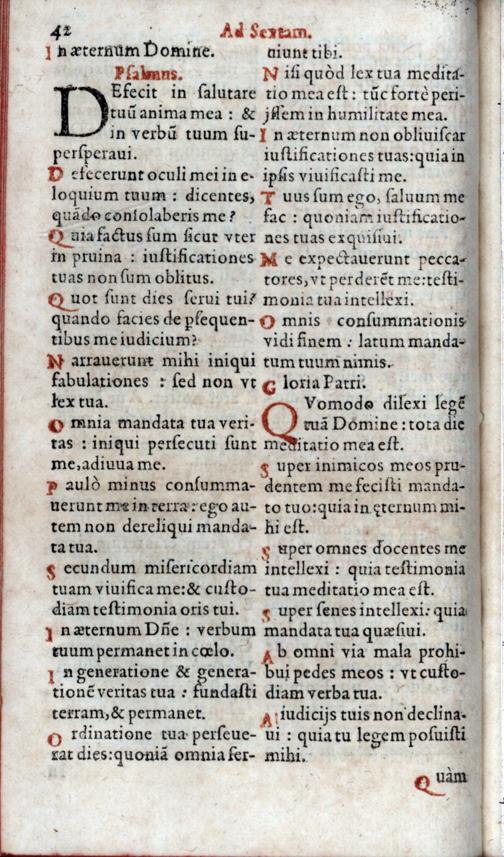 42
Ad Sextam.
In æternum Domine.
Psalmus.
DEfecit in salutare
tuũ anima mea : &
in verbũ tuum su-
persperaui.
Defecerunt oculi mei in e-
loquium tuum : dicentes,
quãdo consolaberis me ?
Quia factus sum sicut vter
in pruina : iustificationes
tuas non sum oblitus.
Quot sunt dies serui tui?
quando facies de psequen-
tibus me iudicium?
Narrauerunt mihi iniqui
fabulationes : sed non vt
lex tua.
Omnia mandata tua veri-
tas : iniqui persecuti sunt
me, adiuua me.
Paulò minus consumma-
uerunt me in terra : ego au-
tem non dereliqui manda-
ta tua.
Secundum misericordiam
tuam viuifica me: & custo-
diam testimonia oris tui.
In æternum Dñe : verbum
tuum permanet in cœlo.
In generatione & genera-
tionẽ veritas tua : fundasti
terram, & permanet.
Ordinatione tua perseue-
rat dies: quoniã omnia ser-
uiunt tibi.
Nisi quòd lex tua medita-
tio mea est : tũc fortè peri-
jssem in humilitate mea.
In æternum non obliuiscar
iustificationes tuas: quia in
ipsis viuificasti me.
Tuus sum ego, saluum me
fac : quoniam iustificatio-
nes tuas exquisiui.
Me expectauerunt pecca-
tores, vt perderẽt me: testi-
monia tua intellexi.
Omnis consummationis
vidi finem : latum manda-
tum tuum nimis.
Gloria Patri.
QVomodo dilexi legẽ
tuã Domine : tota die
meditatio mea est.
Super inimicos meos pru-
dentem me fecisti manda-
to tuo: quia in ęternum mi-
hi est.
Super omnes docentes me
intellexi : quia testimonia
tua meditatio mea est.
Super senes intellexi: quia
mandata tua quæsiui.
Ab omni via mala prohi-
bui pedes meos : vt custo-
diam verba tua.
A iudicijs tuis non declina-
ui : quia tu legem posuisti
mihi.
Quàm